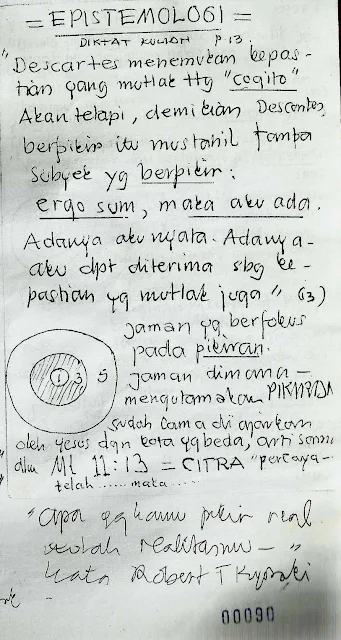 = EPISTEMOLOGI =
DIKTAT KULIAH P 13.
"Descartes menemukan kepas-
tian yang mutlak ttg "cogito"
Akan tetapi, demikian Descartes,
berpikir itu mustahil tampa
subyek yg berpikir:
ergo sum, maka aku ada.
Adanya aku nyata. Adanya-
aku dpt diterima sbg ke-
pastian yg mutlak juga" (13)
jaman yg berfokus
pada pikiran.
jaman dimana-
mengutamakan
1 3 5
sudah lama diajarkan
oleh Yesus dgn kata yg beda, arti sama
dlm Mt 11:13 = CITRA "percaya-
telah...... maka.....
"Apa yg kamu pikir real
adalah realitasmu - "
kata Robert T
00090